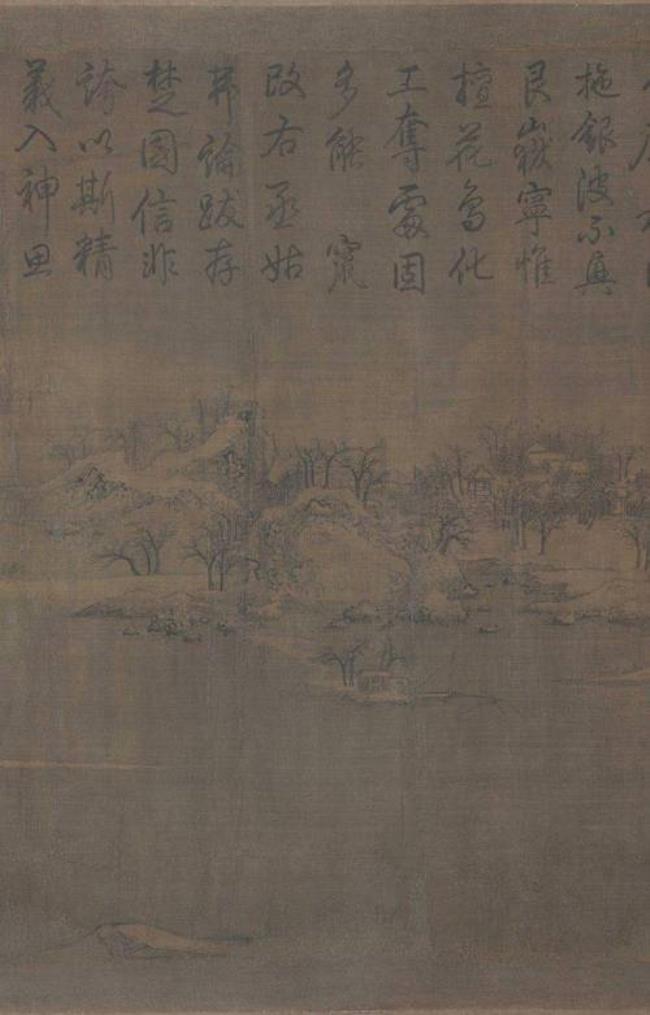 拖銀波不興
艮嶽寧惟
擅花鳥化
工奪處固
多能 竄
改右丞姑
弗論跋存
楚國信非
誇以斯精
義入神思